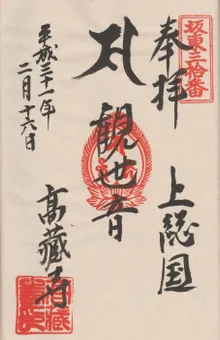 坂東三拾番
奉拝
上総国
観世音
平成三十一年
二月十六日
高藏寺